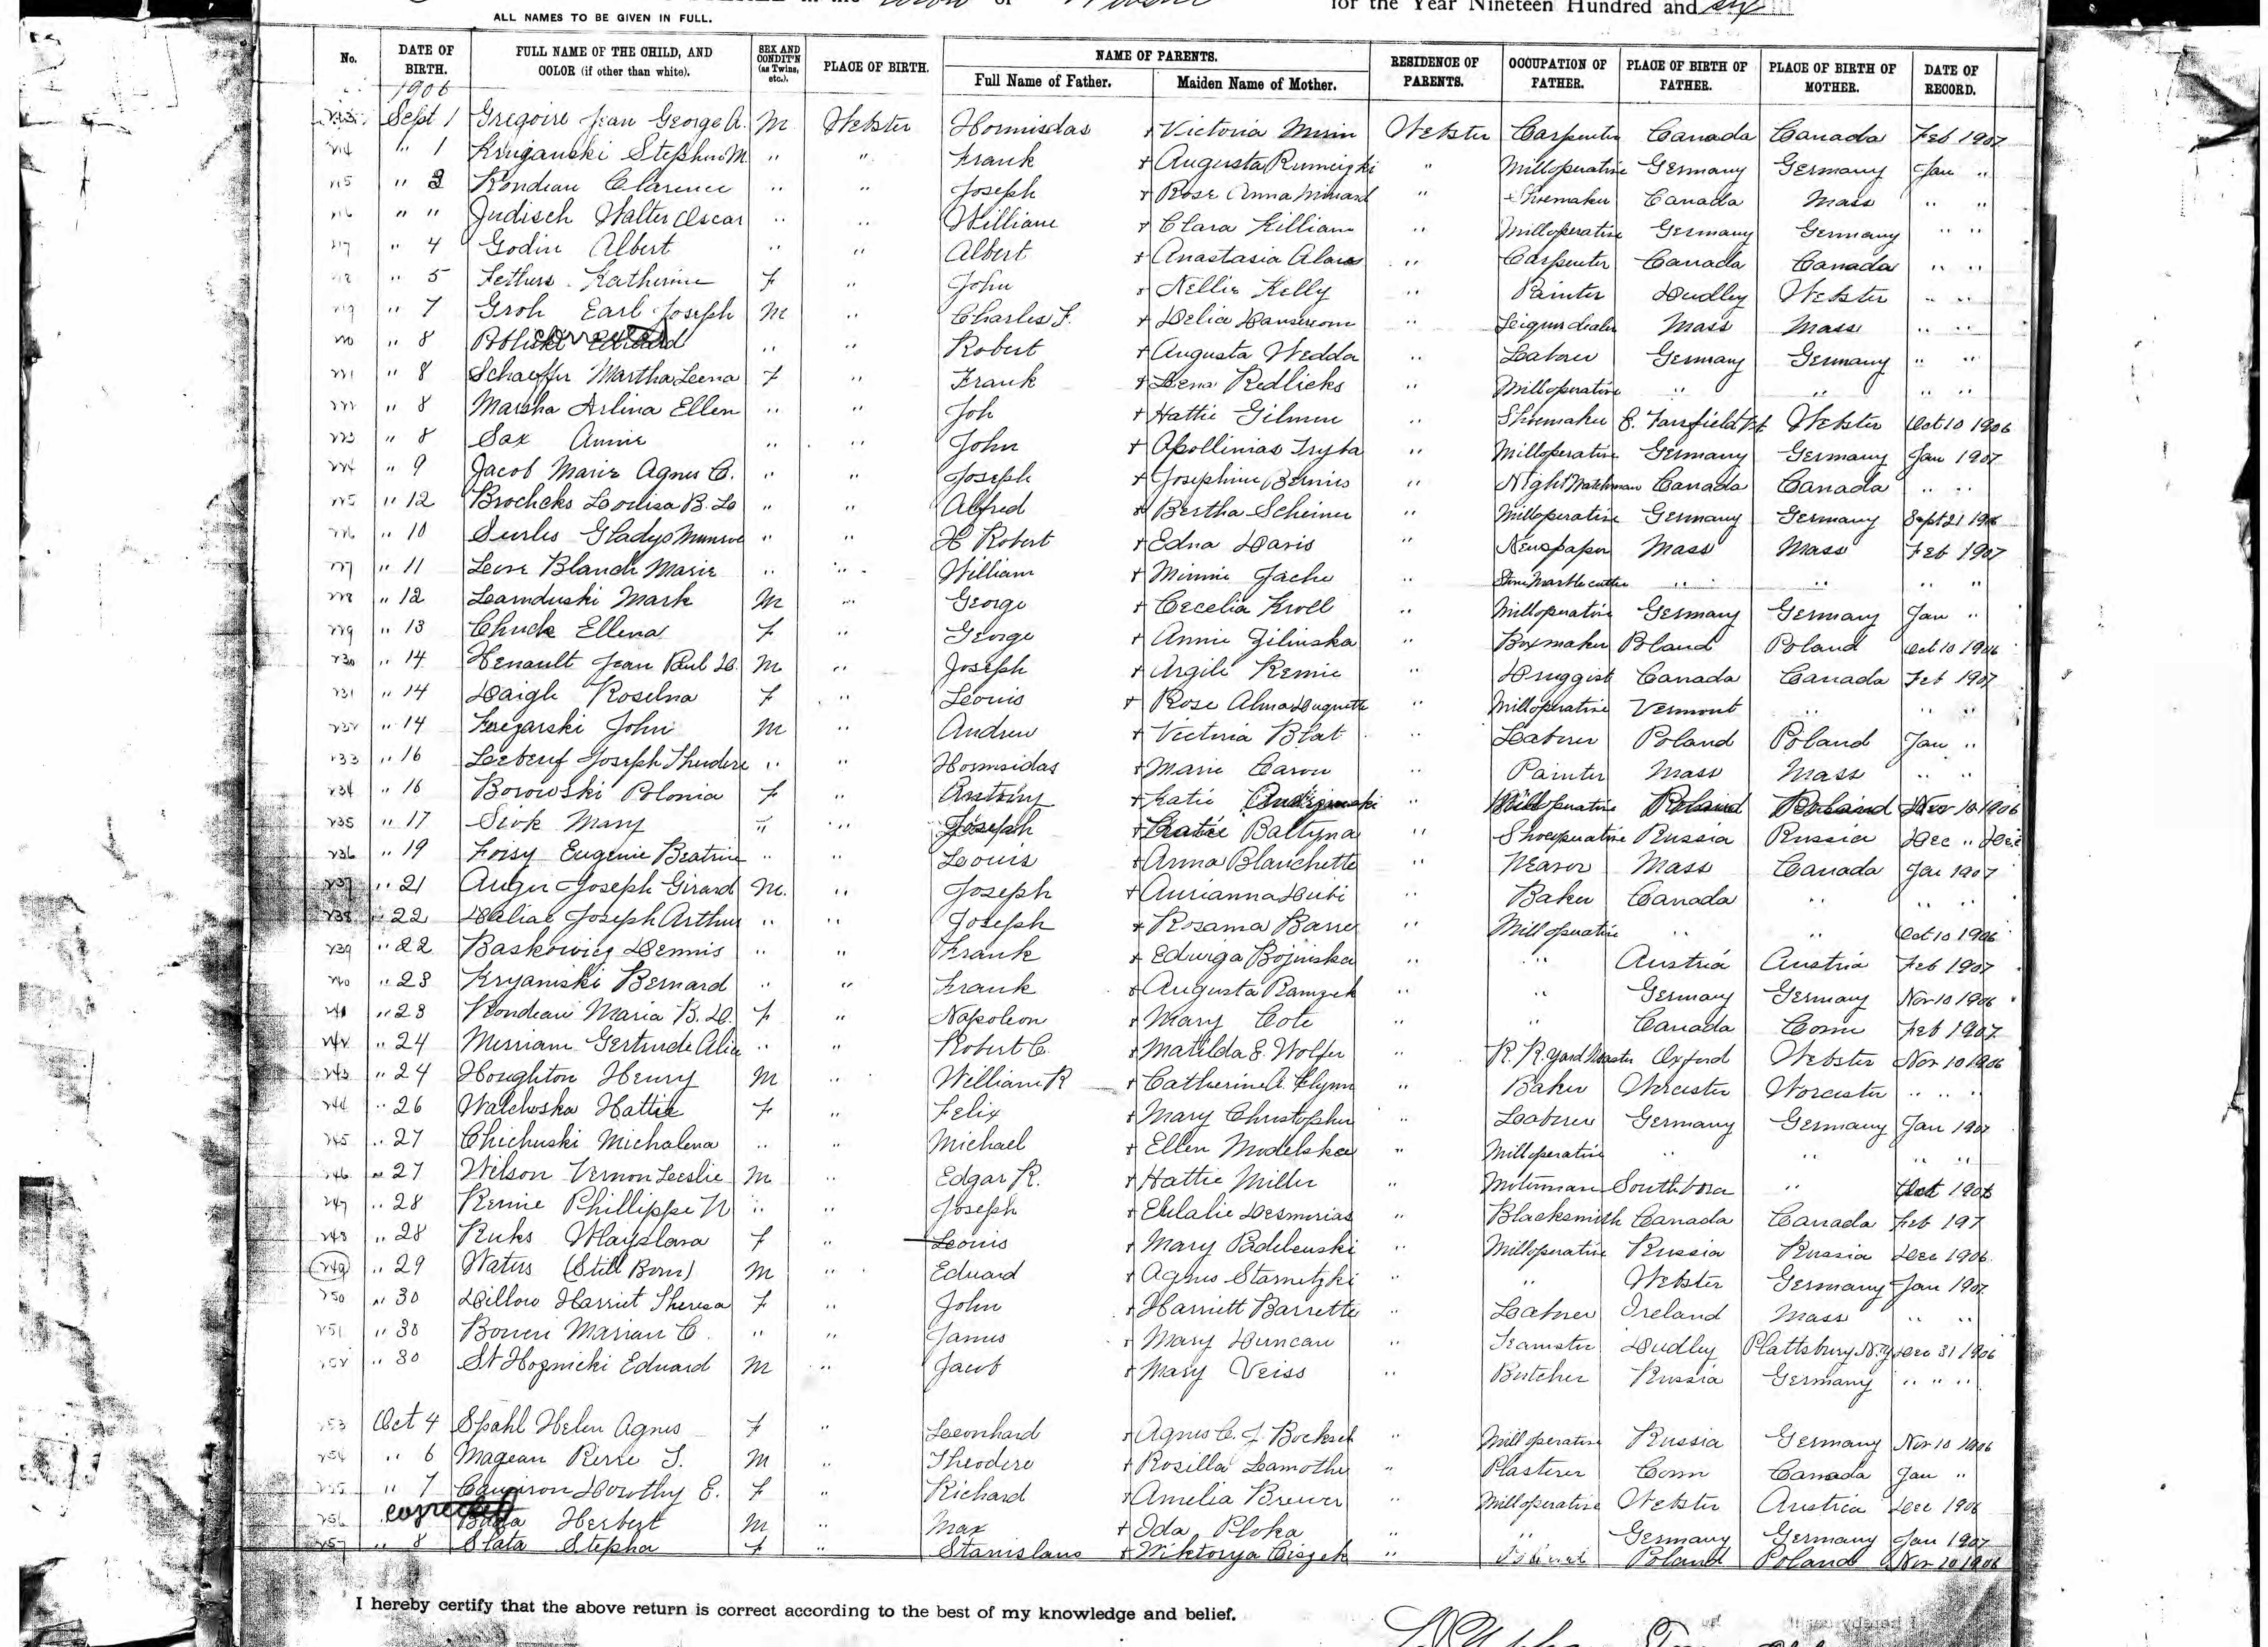 ALL NAMES TO BE GIVEN IN FULL. for the Year Nineteen Hundred and six
No. DATE OF BIRTH. FULL NAME OF THE CHILD, AND COLOR (if other than white). SEX AND CONDIT'N (as Twins, etc.). PLACE OF BIRTH. NAME OF PARENTS. Full Name of Father. Maiden Name of Mother. RESIDENCE OF PARENTS. OCCUPATION OF FATHER. PLACE OF BIRTH OF FATHER. PLACE OF BIRTH OF MOTHER. DATE OF RECORD.
1906
213 Sept 1 Gregoire Jean George A. M Webster Hormisdas + Victoria Webster Carpenter Canada Canada Feb 1907
214 " 1 Stephen M. " " Frank + Augusta " Milloperative Germany Germany Jan "
215 " 2 Rondeau Clarence " " Joseph + Rose Anna " Shoemaker Canada Mass " "
216 " " Judisch Walter Oscar " " William + Clara Killian " Milloperative Germany Germany " "
217 " 4 Godin Albert " " Albert + Anastasia " Carpenter Canada Canada " "
218 " 5 Katherine F " John + Nellie Kelly " Painter Dudley Webster " "
219 " 7 Groh Earl Joseph M " Charles F. + Delia " dealer Mass Mass " "
220 " 8 Edward " " Robert + Augusta Wedda " Laborer Germany Germany " "
221 " 8 Schaeffer Martha Leena F " Frank + Lena Redlicks " Milloperative " " " "
222 " 8 Marsha Arlina Ellen " " Joh + Hattie Gilmen " Shoemaker E. Fairfield Vt Webster Oct 10 1906
223 " 8 Sax Annie " " John + Apollinias Tryba " Milloperative Germany Germany Jan 1907
224 " 9 Jacob Marie Agnes C. " " Joseph + Josephine Bernier " Night Watchman Canada Canada " "
225 " 12 Louisa B. Lo " " Alfred + Bertha Scheiner " Milloperative Germany Germany Sept 21 1906
226 " 10 Surles Gladys Munroe " " H Robert + Edna Davis " Newspaper Mass Mass Feb 1907
227 " 11 Blanch Marie " " William + Minnie Jache " Marble cutter " " " "
228 " 12 Lamduski Mark M " George + Cecelia Kroll " Milloperative Germany Germany Jan "
229 " 13 Chuck Ellena F " George + Annie Zilinska " Boxmaker Poland Poland Oct 10 1906
230 " 14 Henault Jean Paul D. M " Joseph + Argile Remie " Druggist Canada Canada Feb 1907
231 " 14 Daigle Roselna F " Louis + Rose Alma Duquette " Milloperative Vermont " " "
232 " 14 John M " Andrew + Victoria Blat " Laborer Poland Poland Jan "
233 " 16 Lebeuf Joseph Theodere " " Hormsidas + Marie Caron " Painter Mass Mass " "
234 " 16 Borowski Polonia F " Antony + Katie " Milloperative Poland Poland Nov 10 1906
235 " 17 Siok Mary " " Joseph + Katie Baltyna " Shoeoperative Russia Russia Dec " Dec
236 " 19 Foisy Eugenie Beatrice " " Louis + Anna Blanchette " Weaver Mass Canada Jan 1907
237 " 21 Auger Joseph Girard M. " Joseph + Aurianna Dubi " Baker Canada " " "
238 " 22 Joseph Arthur " " Joseph + Rosama Barre " Milloperative " " Oct 10 1906
239 " 22 Baskowicz Dennis " " Frank + Edwiga Bojinska " " Austria Austria Feb 1907
240 " 23 Kryaniski Bernard " " Frank + Augusta Ramzek " " Germany Germany Nov 10 1906
241 " 23 Rondeau Maria B. D. F " Napoleon + Mary Cote " " Canada Conn Feb 1907
242 " 24 Merriam Gertrude Alice " " Robert C. + Matilda E. Wolfer " R. R. Yard Master Oxford Webster Nov 10 1906
243 " 24 Houghton Henry M " William R + Catherine A. Flynn " Baker Worcester Worcester " " "
244 " 26 Walchoska Hattie F " Felix + Mary Christopher " Laborer Germany Germany Jan 1907
245 " 27 Chichuski Michalena " " Michael + Ellen Modelska " Milloperative " " " "
246 " 27 Wilson Vernon Leeslie M " Edgar R. + Hattie Miller " Motorman Southboro " Oct 1906
247 " 28 Remie Phillippe N " " Joseph + Eulalie Desmerias " Blacksmith Canada Canada Feb 197
248 " 28 Ruks Wlayslava F " Louis + Mary Padelenski " Milloperative Russia Russia Dec 1906
249 " 29 Waters (Still Born) M " Edward + Agnes Starnetzki " " Webster Germany Jan 1907
250 " 30 Dillow Harriet Theresa F " John + Harriett Barrette " Laborer Ireland Mass " "
251 " 30 Bowen Marian C. " " James + Mary Duncan " Teamster Dudley Plattsbury N.Y Dec 31 1906
252 " 30 St Hoznicki Edward M " Jacob + Mary Veiss " Butcher Russia Germany " " "
253 Oct 4 Spahl Helen Agnes F " Leonhard + Agnes C. J. Bocksch " Mill operative Russia Germany Nov 10 1906
254 " 6 Magean Pierre T. M " Theodere + Rosilla Lamothe " Plasterer Conn Canada Jan "
255 " 7 Cameron Dorothy E. F " Richard + Amelia Brewer " Milloperative Webster Austria Dec 1906
256 corrected Herbert M " Max + Ida Ploka " " Germany Germany Jan 1907
257 " 8 Stata Stepha F " Stanislaus + Wiktorya Ciszek " Poland Poland Nov 10 1906
I hereby certify that the above return is correct according to the best of my knowledge and belief.